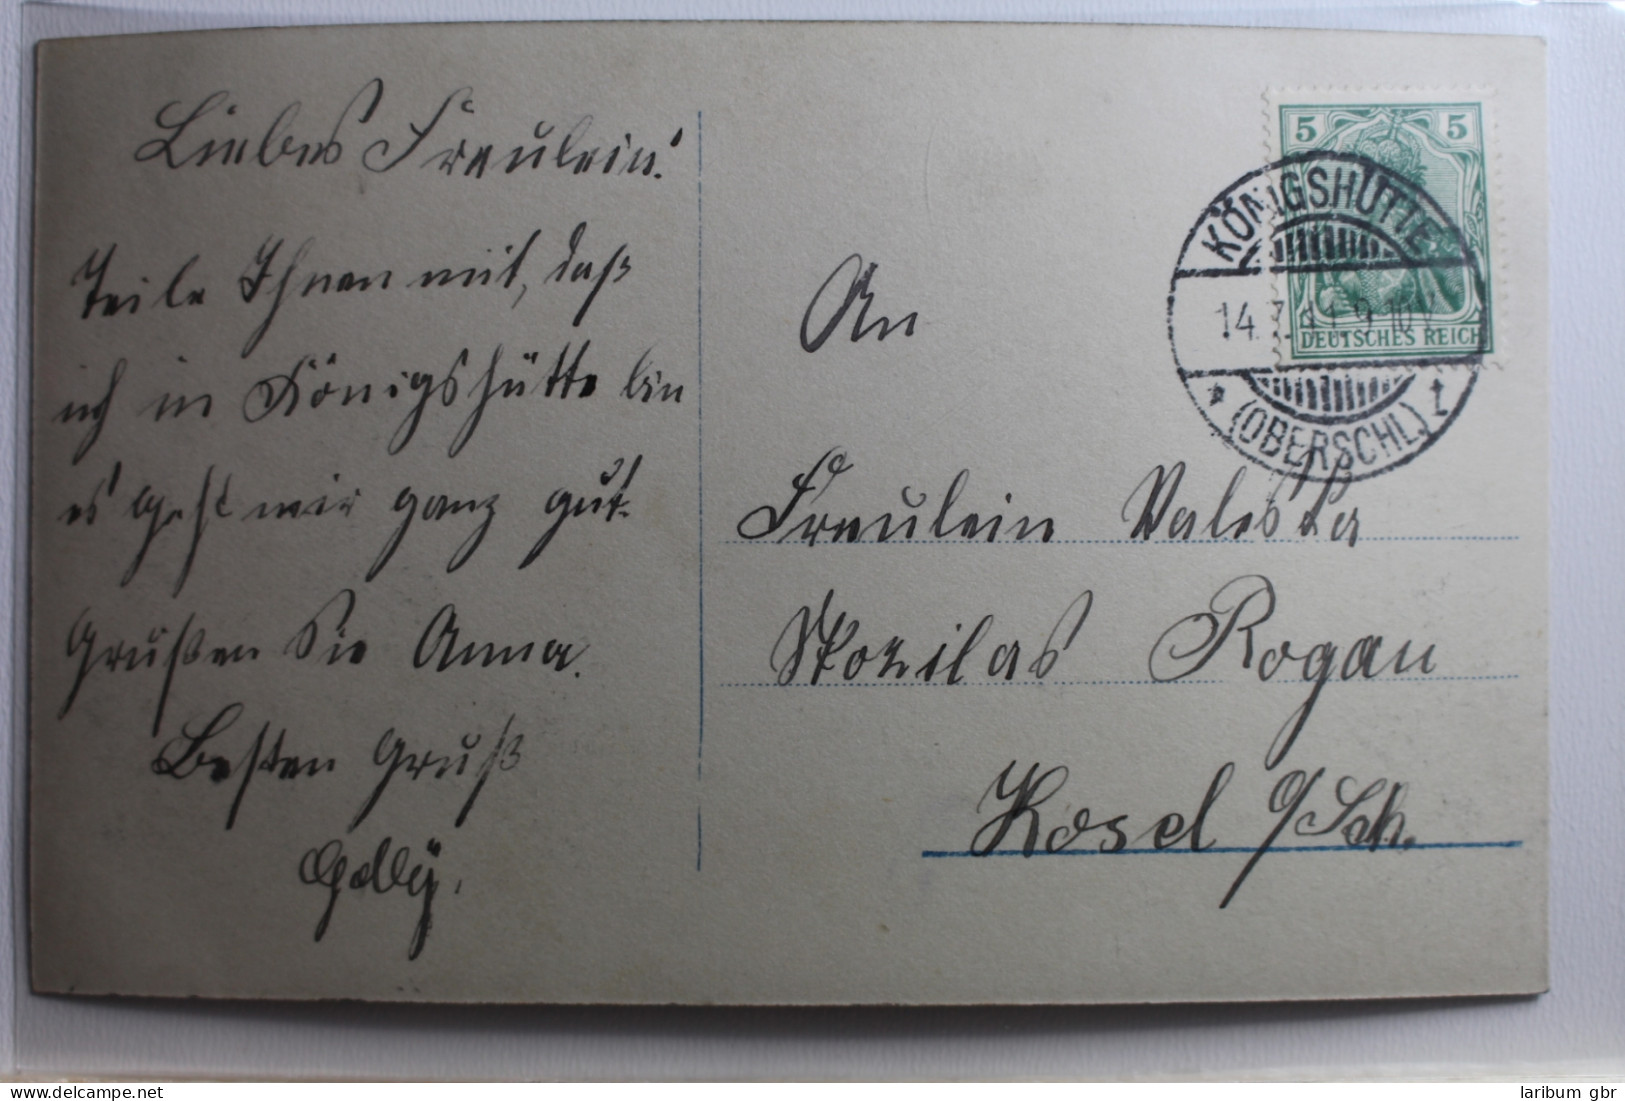 Liebes Fräulein!
Teile Ihnen mit, daß
ich in Königshütte bin
es geht mir ganz gut.
Grüßen Sie Anna.
Besten Gruß
An
Fräulein Valeska
Rogau
Kosel O/Sch.
5 5
DEUTSCHES REICH
KÖNIGSHÜTTE
14. 9-10V
* (OBERSCHL.) t
www.delcampe.net
laribum gbr